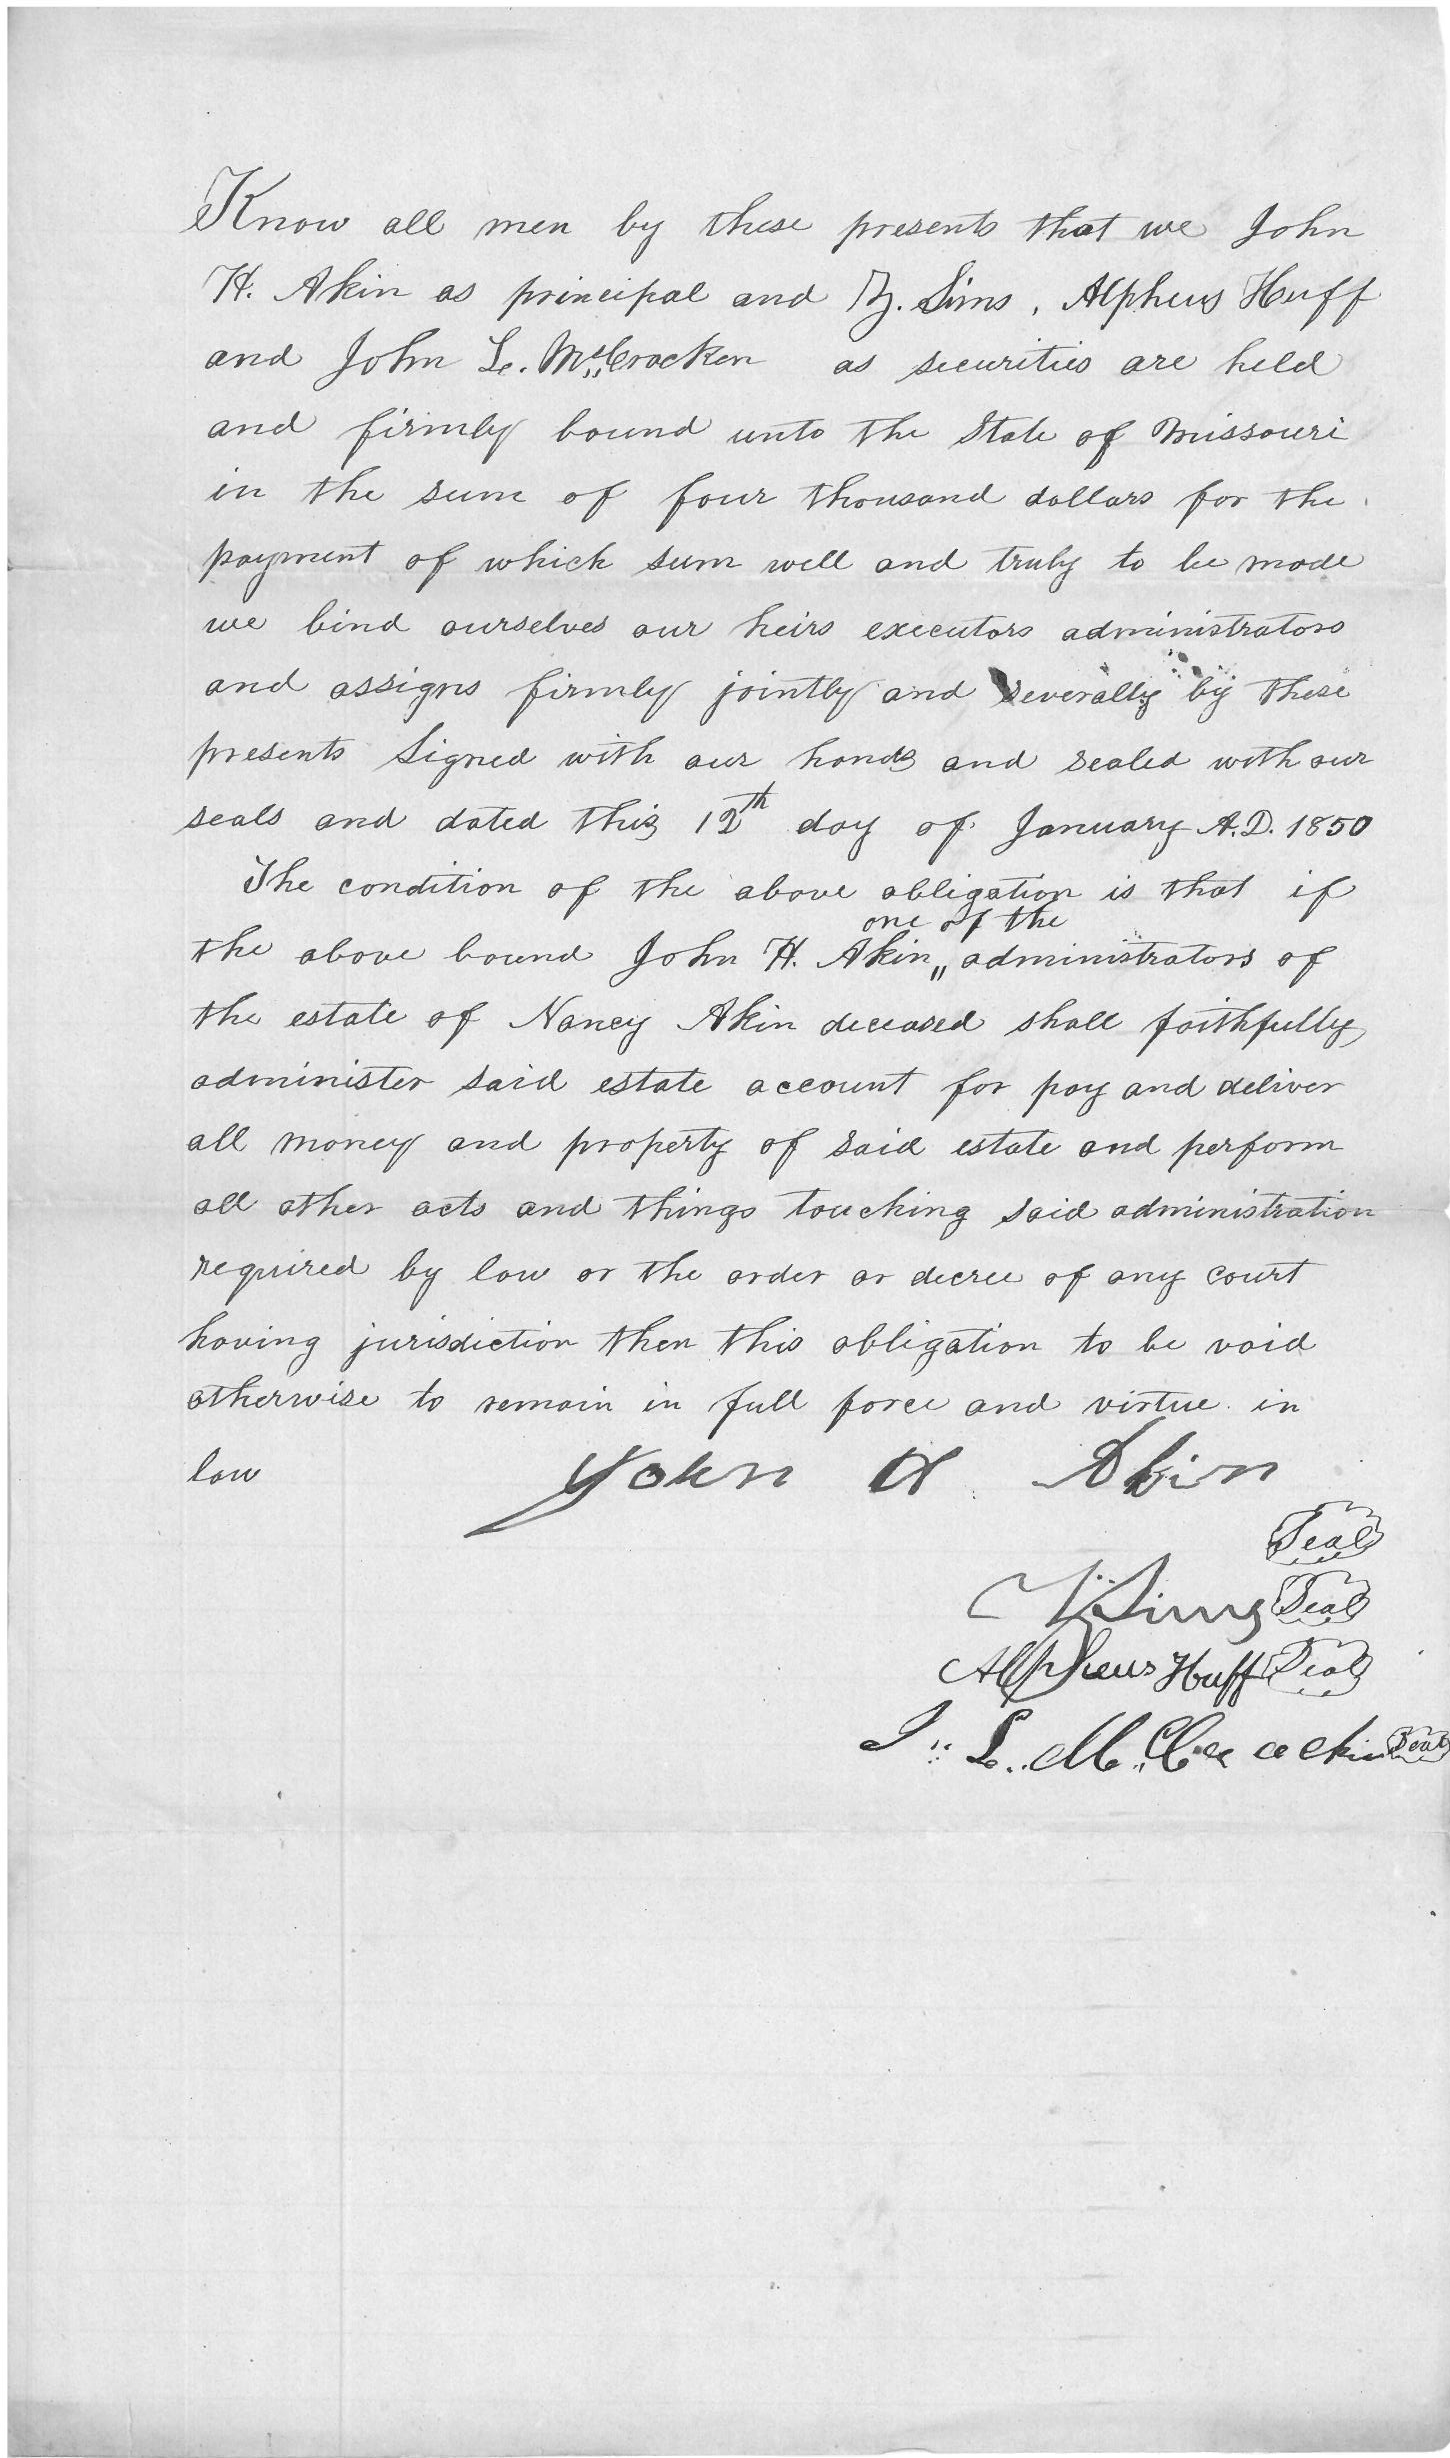 Know all men by these presents that we John
H. Akin as principal and Sims, Alpheus Huff
and John L. McCracken as securities are held
and firmly bound unto the State of Missouri
in the sum of four thousand dollars for the
payment of which sum well and truly to be made
we bind ourselves our heirs executors administrators
and assigns firmly jointly and severally by these
presents Signed with our hands and sealed with our
seals and dated this 12th day of January A.D. 1850
The condition of the above obligation is that if
one of the
the above bound John H. Akin,, administrators of
the estate of Nancy Akin deceased shall faithfully
administer said estate account for pay and deliver
all money and property of said estate and perform
all other acts and things touching said administration
required by law or the order or decree of any court
having jurisdiction then this obligation to be void
otherwise to remain in full force and virtue in
law John H Akin
Seal
Sims Seal
Alpheus Huff Seal
J. L. McCracken Seal